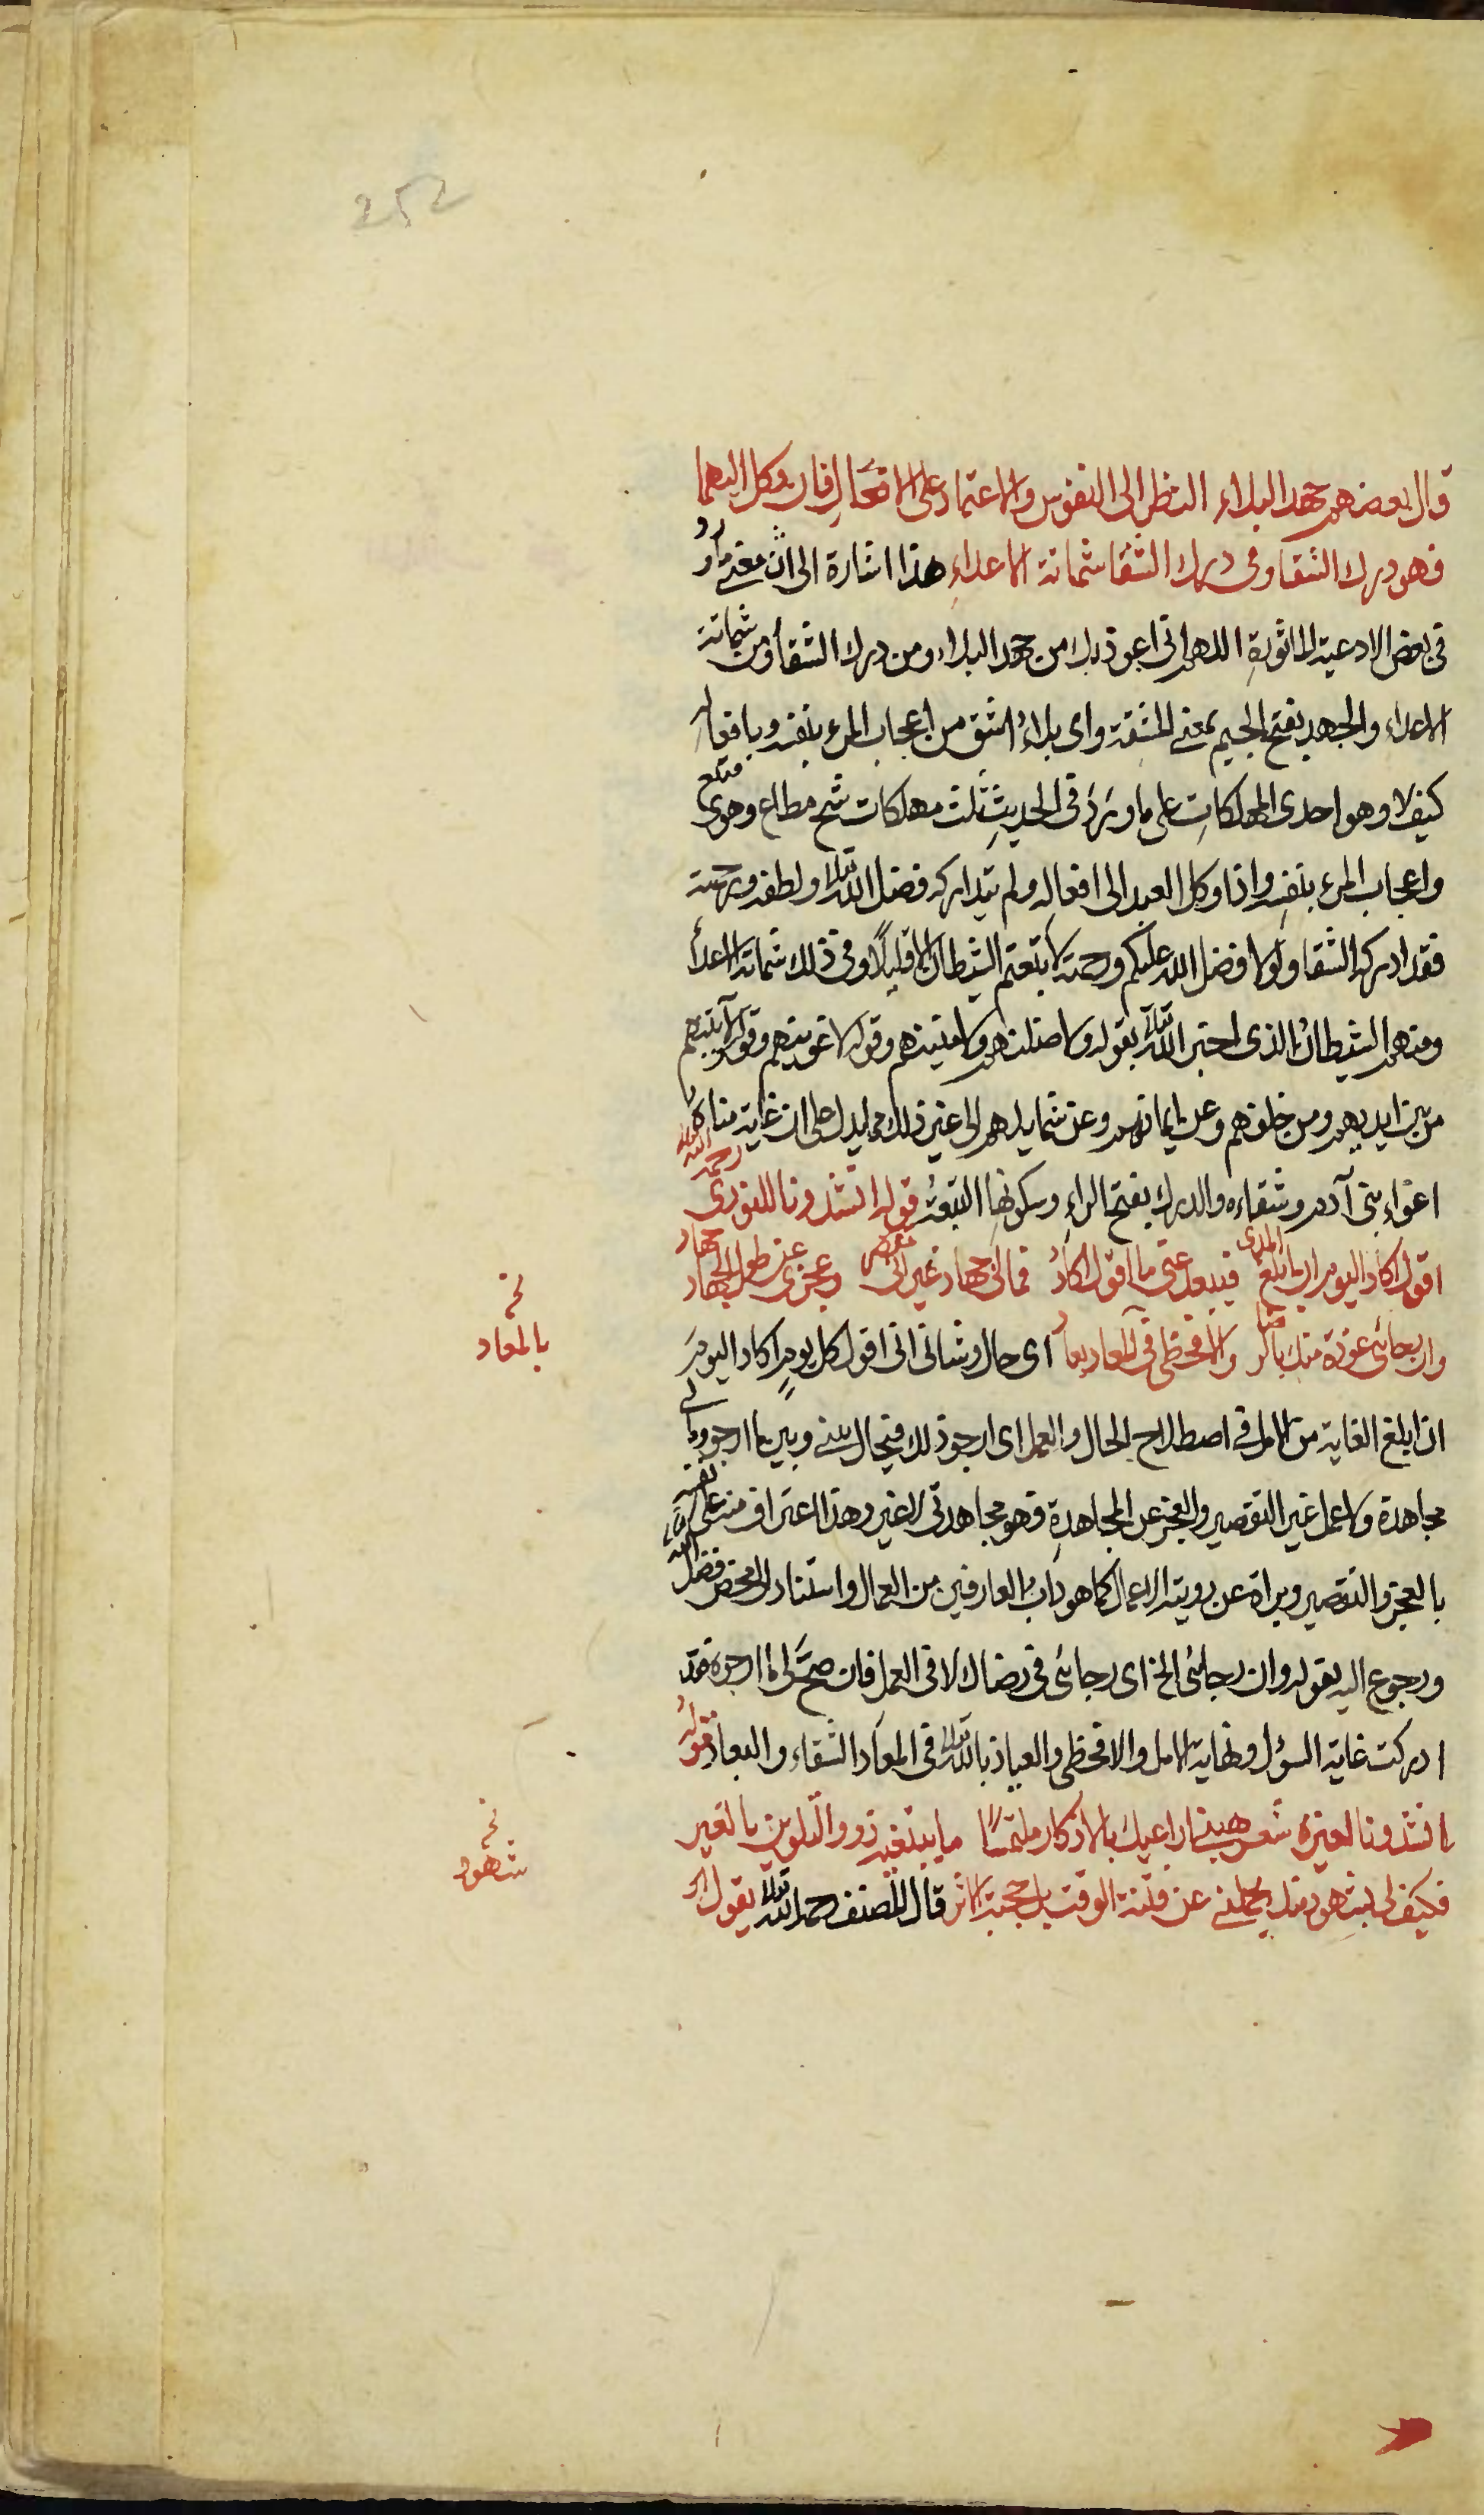 252
قال بعضهم جهد البلاء النظر الى النفوس والاعتماد على الافعال فان وكل اليهما
فهو درك الشقا وفى درك الشقا شماتة الاعداء هذا اشارة الى ان معنى ما ورد
فى بعض الادعية الماثورة اللهم انى اعوذ بك من جهد البلاء ومن درك الشقا ومن شماتة
الاعداء والجهد بفتح الجيم بمعنى المشقة واى بلاء اشق من اعجاب المرء بنفسه وبافعاله
كيف لا وهو احدى المهلكات على ما ورد فى الحديث ثلث مهلكات شح مطاع وهوى متبع
واعجاب المرء بنفسه واذا وكل العبد الى افعاله ولم يتداركه فضل الله تعالى ولطفه ورحمته
فقد ادركه الشقا ولولا فضل الله عليكم ورحمته لاتبعتم الشيطان الا قليلا وفى ذلك شماتة الاعداء
ومنهم الشيطان الذى اخبر الله تعالى بقوله ولاضلنهم ولامنينهم وقوله لاغوينهم وقوله لآتينهم
من بين ايديهم ومن خلفهم وعن ايمانهم وعن شمايلهم الى غير ذلك مما يدل على ان غاية مناه
اغواء بنى آدم وشقاءه والدرك بفتح الراء وسكونها التبعة قوله انشدونا للنورى رحمه الله تعالى
اقول اكاد اليوم ان ابلغ المدى فيبعد عنى ما اقول اكاد فمالى جهاد غير انى مقصر وعجزى عن طول الجهاد جهاد
وان رجائى عودة منك بالرضا والا فحظى فى المعاد بعاد اى حال وشانى انى اقول كل يوم اكاد اليوم
ان ابلغ الغاية من الامل فى اصطلاح الحال والعمل اى ارجو ذلك فيحال بينى وبين ما ارجو وما لى
مجاهدة ولا عمل غير التقصير والعجز عن المجاهدة فهو مجاهدتى لا غير وهذا اعتراف منه على نفسه
بالعجز والتقصير وبراة عن روية الاعمال كما هو داب العارفين من العمال واستناد الى محض فضل الله تعالى
ورجوع اليه بقوله وان رجائى الخ اى رجائى فى رضاك لا فى العمل فان صح لى ما ارجوه فقد
ادركت غاية السؤل ونهاية الامل والا فحظى والعياذ بالله تعالى فى المعاد الشقاء والبعاد قوله
انشدونا لغيره شعر هبنى اراعيك بالاذكار ملتمسا ما يبتغيه ذوو التلوين بالغير
فكيف لى بشهود منك يحملنى عن فتنة الوقت بل حجبة الاثر قال المصنف رحمه الله تعالى يقول
نخ
بالمعاد
نخ
شهود